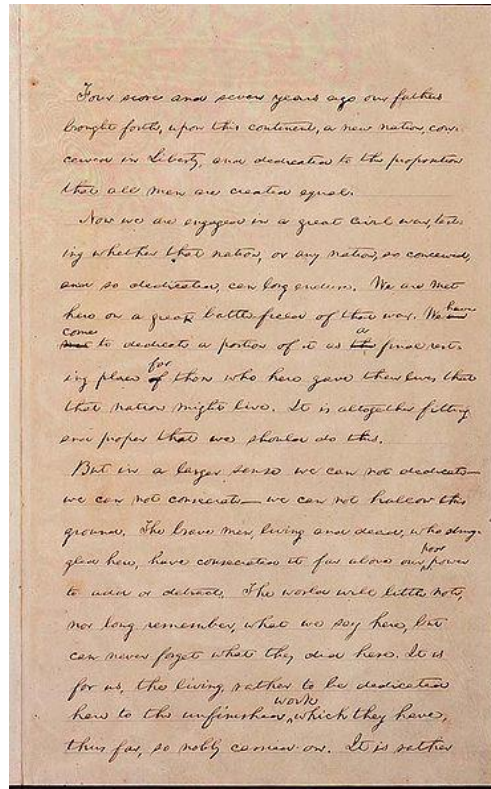 Four score and seven years ago our fathers
brought forth, upon this continent, a new nation, con-
ceived in Liberty, and dedicated to the proposition
that all men are created equal.
Now we are engaged in a great civil war, test-
ing whether that nation, or any nation, so conceived,
and so dedicated, can long endure. We are met
here on a great battle field of that war. We have
come to dedicate a portion of it as a final rest-
ing place for those who here gave their lives that
that nation might live. It is altogether fitting
and proper that we should do this.
But in a larger sense we can not dedicate—
we can not consecrate— we can not hallow this
ground. The brave men, living and dead, who strug-
gled here, have consecrated it far above our poor power
to add or detract. The world will little note,
nor long remember, what we say here, but
can never forget what they did here. It is
for us, the living, rather to be dedicated
here to the unfinished work which they have,
thus far, so nobly carried on. It is rather